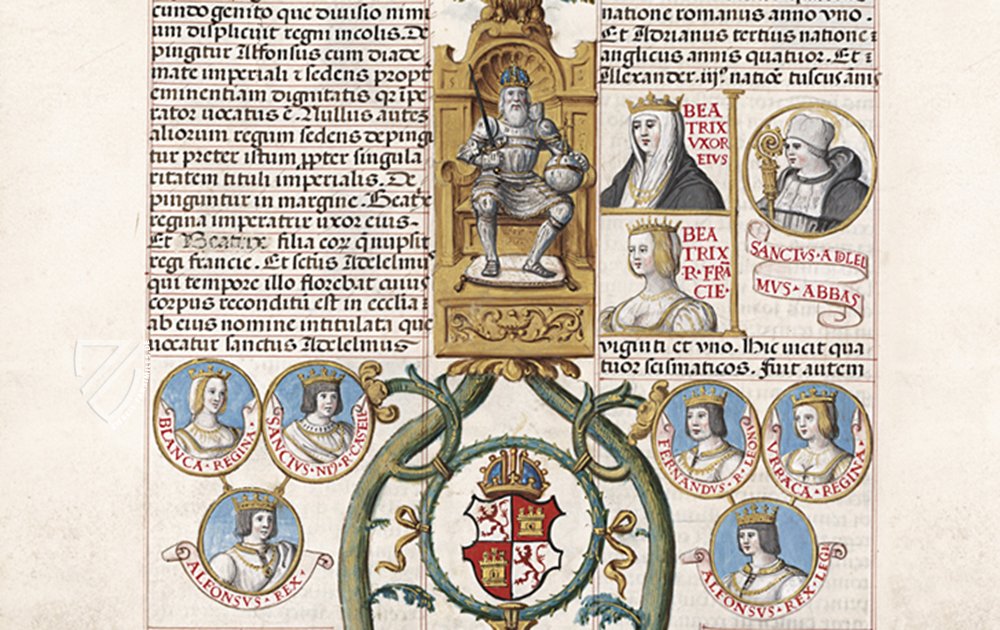 cundo genito que divisio nimi
um displicuit regni incolis. De
pingitur Alfonsus cum diade
mate imperiali ⁊ sedens propt
eminentiam dignitatis qr impe
rator vocatus ē. Nullus autez
aliorum regum sedens depingi
tur preter istum propter singula
ritatem tituli imperialis. De
pinguntur in margine. Beatx
regina imperatrix uxor eius.
Et Beatrix filia eorz q nupsit
regi francie. Et sctus Adelelmus
qui tempore illo florebat cuius
corpus reconditū est in ecclia
ab eius nomine intitulata que
vocatur sanctus Adelelmus
natione romanus anno vno.
Et Adrianus tertius natione
anglicus annis quatuor. Et
Alexander .iij. natiōe tuscus ānis
BEA
TRIX
VXOR
EIVS
BEA
TRIX
·R·FRĀ
CIE·
SANCTVS·ADLEL
MVS·ABBAS
viginti et vno. Hic vicit qua
tuor scismaticos. Fuit autem
BLANCA·REGINA·
SANCTIVS·
ALFONSVS·REX·
FERNANDVS·R·LEGIONĪS
VRRACA·REGINA·
ALFONSVS·REX·LEGIŌ